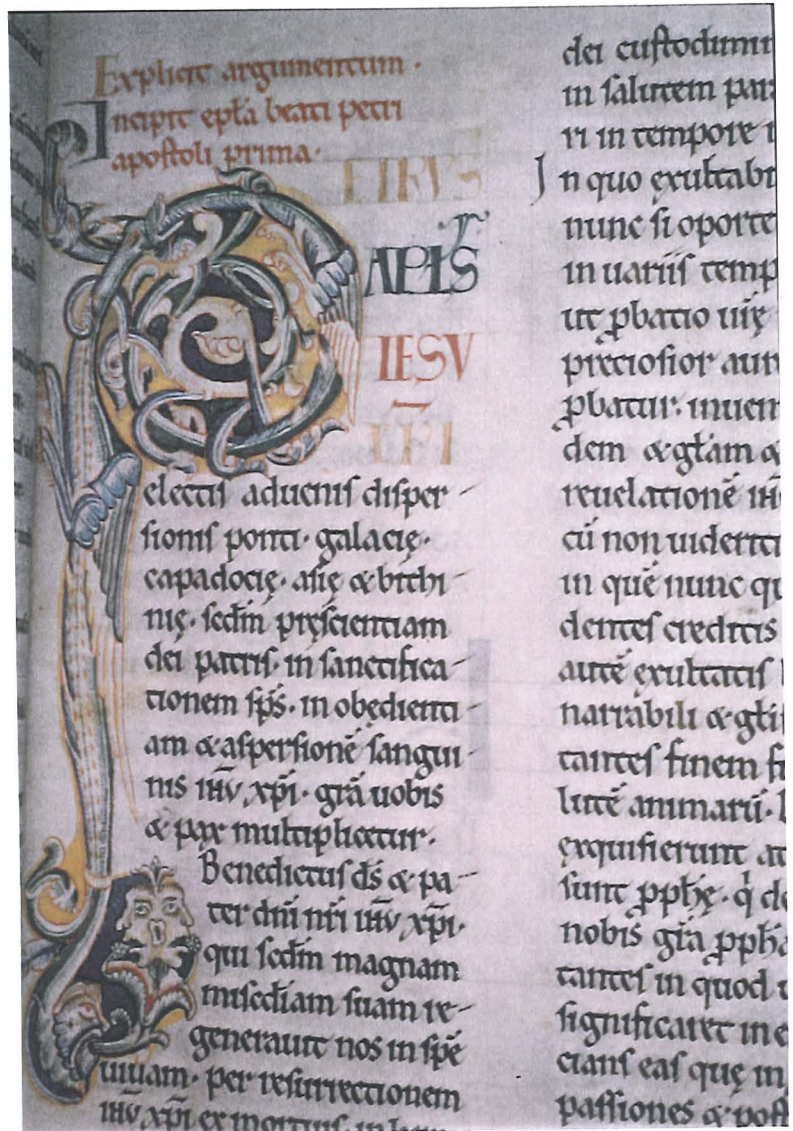 Explicit argumentum ·
Incipit epła beati petri
apostoli prima ·
P ETRVS
APŁS
IESV
electis aduenis disper
sionis ponti · galacię ·
capadocię · asię & bithi
nię · scđm pręscientiam
dei patris · in sanctifica
tionem sp̄s · in obędienti
am & aspersionē sangui
nis ihū xp̄i · gr̄a uobis
& pax multiplicetur ·
Benedictus d̄s & pa
ter dn̄i nr̄i ihū xp̄i ·
qui scđm magnam
miscđiam suam re
generauit nos in spē
uiuam · per resurrectionem
ihū xp̄i ex mortuis · in
dei custodimi
in salutem par
ri in tempore
In quo ęxultabi
nunc si oporte
in uariis temp
ut ꝓbatio
preciosior aur
ꝓbatur · inuen
dem & gł̄am &
reuelationē ih̄u
cū non uideriti
in quē nunc qu
dentes creditis
autē ęxultatis
narrabili & gł̄i
tantes finem fi
lutē animarū ·
ęxquisierunt at
sunt ꝓph̄ę · q̇ de
nobis gr̄a ꝓph̄a
tantes in quod
significaret in e
cians eas quę in
passiones & post